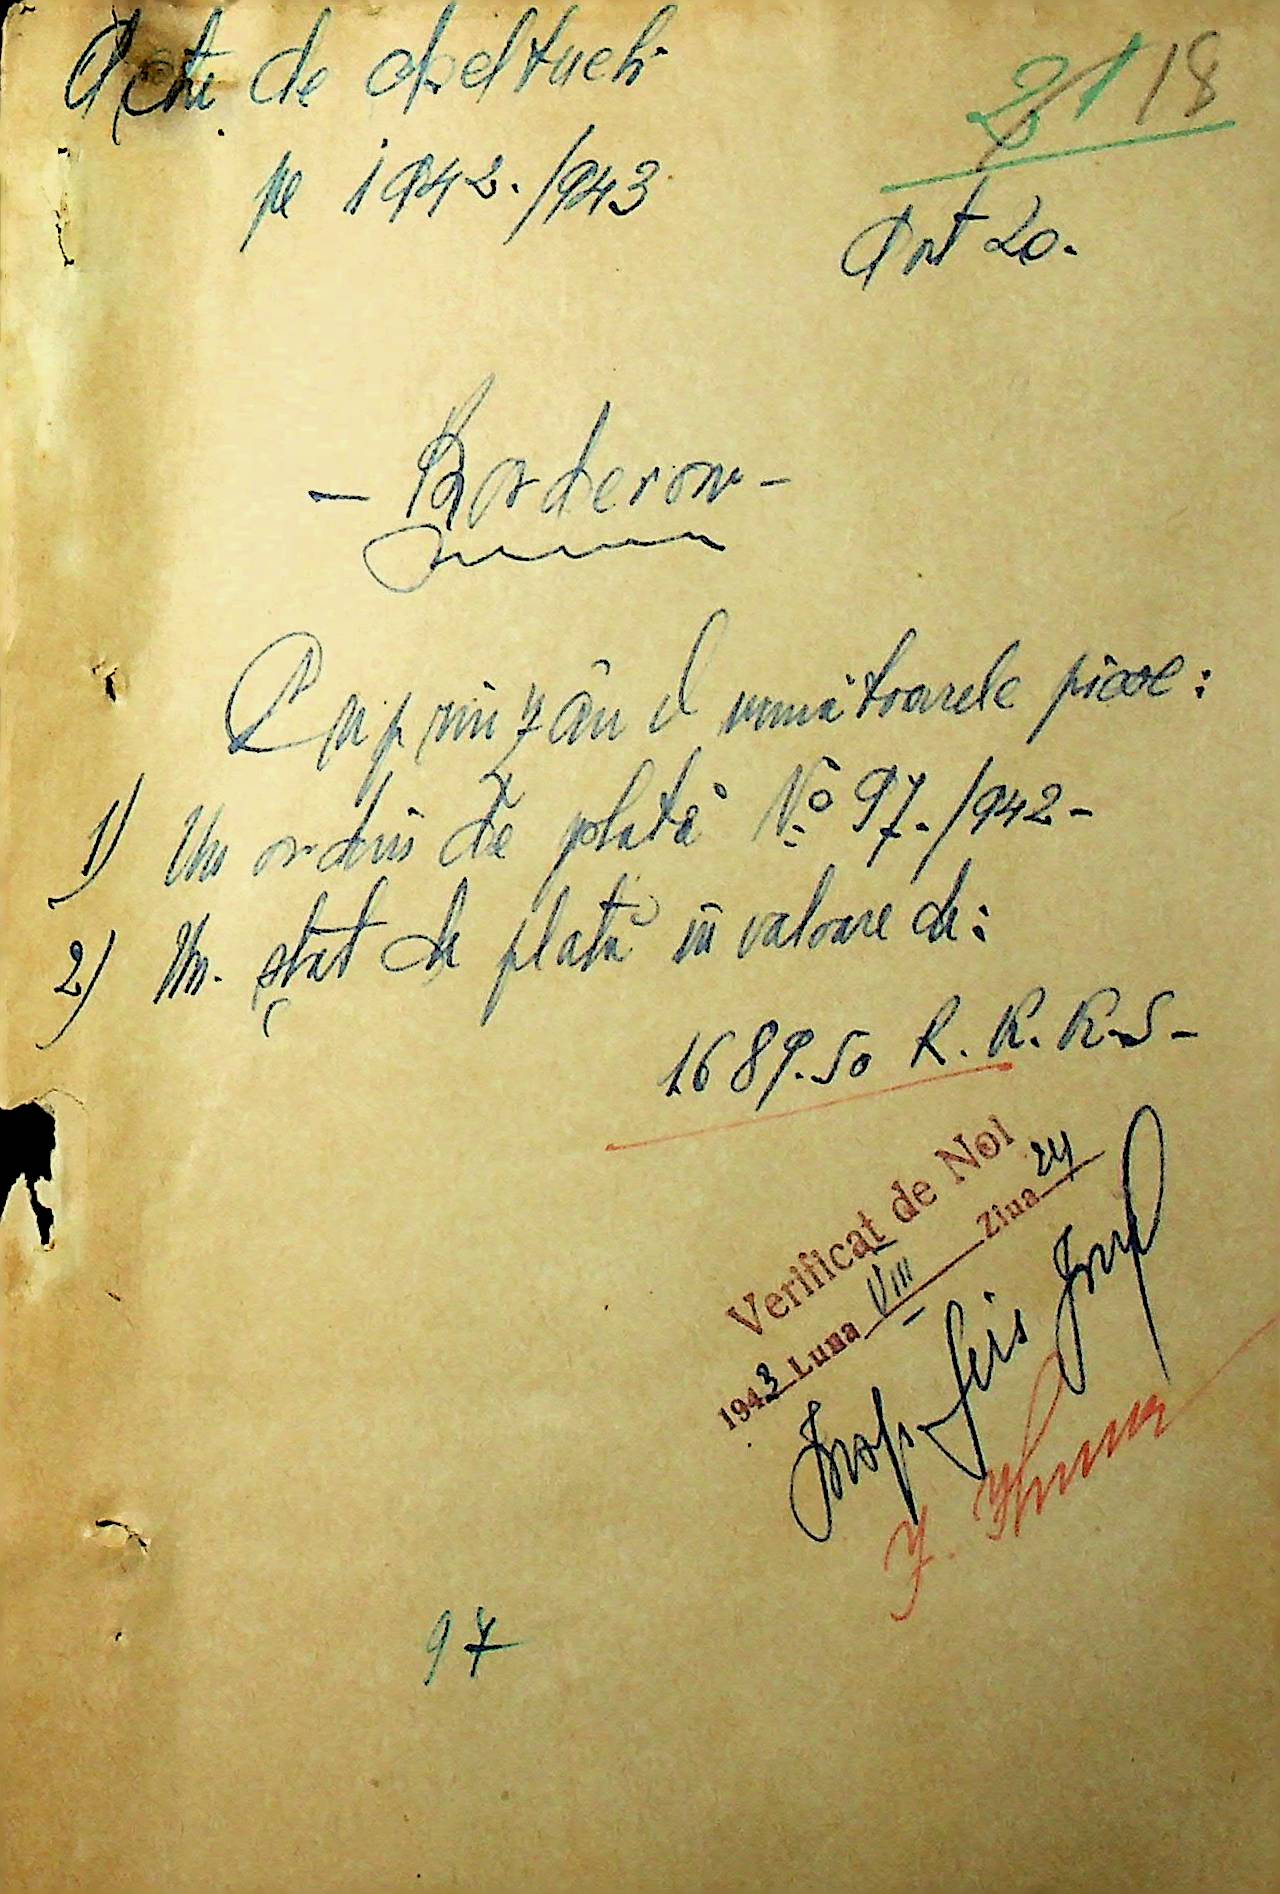 Acte de cheltueli
pe 1942./943
21 18
Art 20.
- Borderou -
Cuprinzând următoarele piese:
1) Un ordin de plată No 97./942-
2) Un. ștat de plată în valoare de:
1689.50 R. K. K. S-
Verificat de Noi
1943 Luna VIII Ziua 24
97